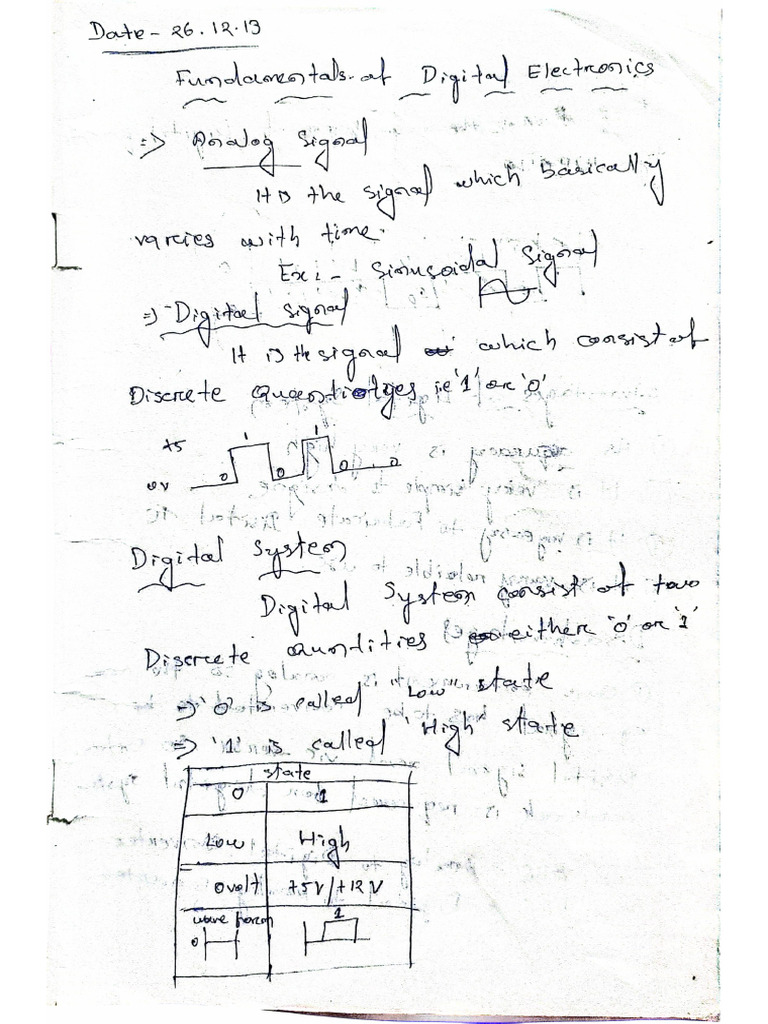 Date - 26.12.13
Fundamentals of Digital Electronics
=> Analog Signal
It is the signal which basically
varies with time.
Ex:- Sinusoidal Signal
=> Digital signal
It is the signal which consist of
Discrete i.e '1' or '0'
+5 1 1
0V 0 0 0 0
Digital System
Digital System consist of two
Discrete quantities either '0' or '1'
=> '0' is called "Low" state
=> '1' is called 'High' state
state
0 1
Low High
0volt +5V/+12V
wave form 1
0